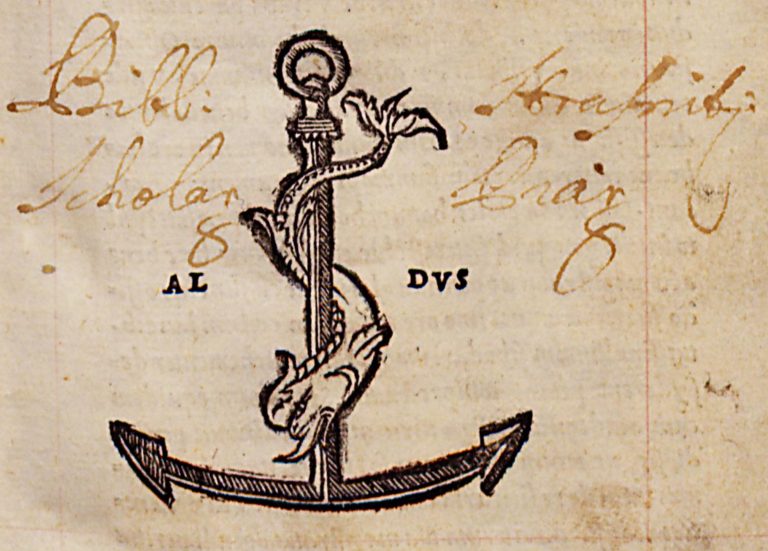 Bibl: Straſnitij
Scholar Piar
AL DVS